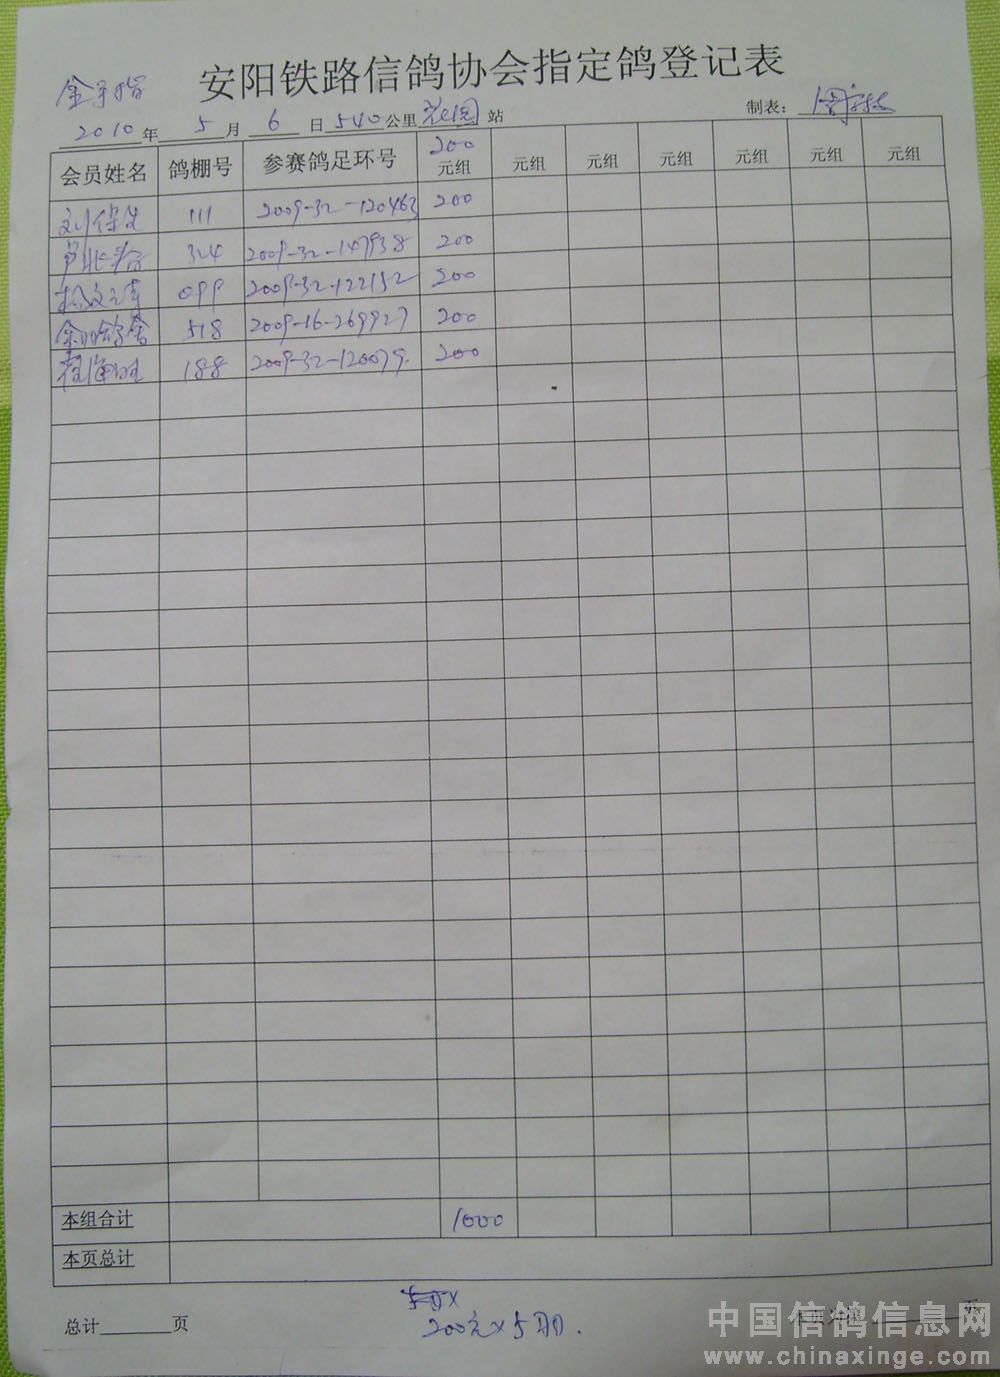 安阳铁路信鸽协会指定鸽登记表
制表：
2010年 5月 6日 540公里 花园 站
会员姓名 鸽棚号 参赛鸽足环号 200元组 元组 元组 元组 元组 元组 元组
刘保生 111 2009-32-120463 200
324 2009-32-147938 200
099 2009-32-122152 200
518 2009-16-269927 200
188 2009-32-120079. 200
本组合计 1000
本页总计
总计 页
200元×5羽.
中国信鸽信息网
www.chinaxinge.com